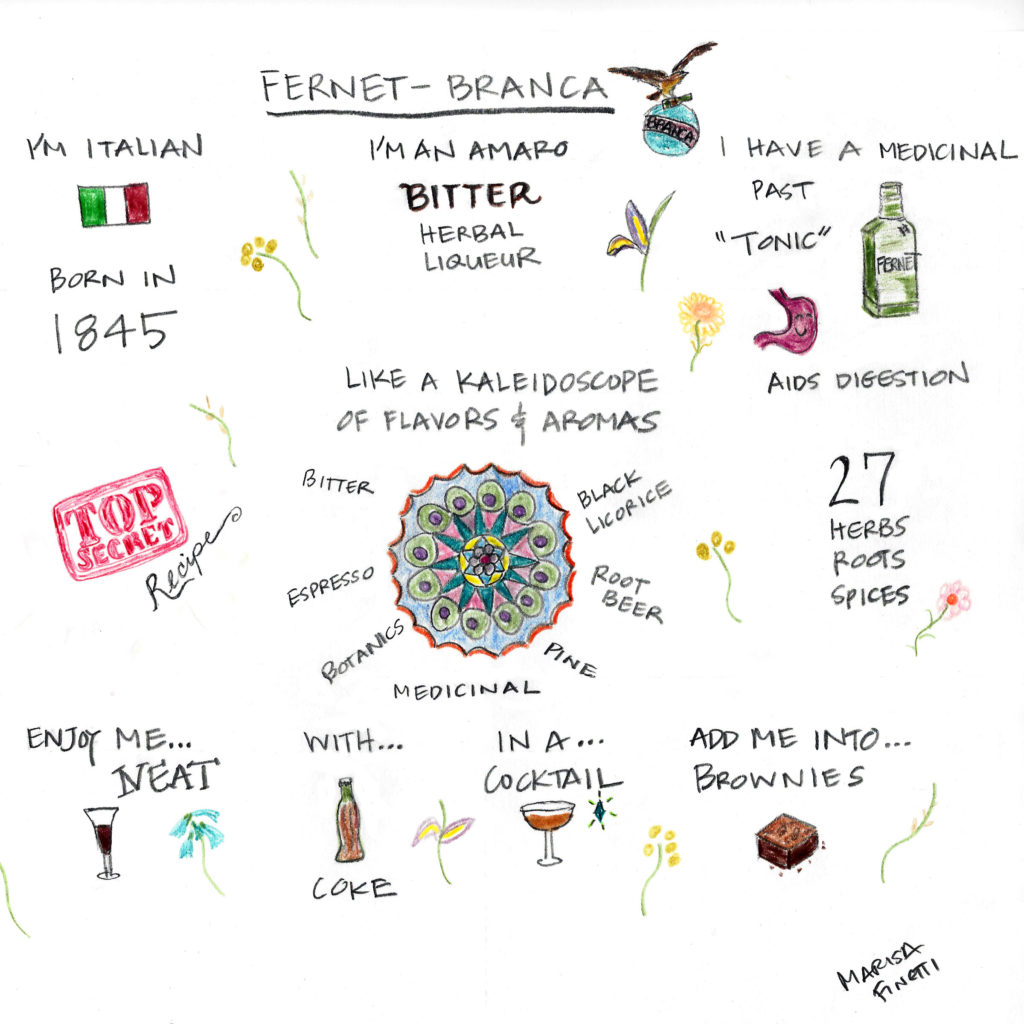 FERNET-BRANCA
BRANCA
I'M ITALIAN
BORN IN
1845
I'M AN AMARO
BITTER
HERBAL
LIQUEUR
I HAVE A MEDICINAL
PAST
"TONIC"
FERNET
AIDS DIGESTION
LIKE A KALEIDOSCOPE
OF FLAVORS & AROMAS
TOP
SECRET
Recipe
BITTER
ESPRESSO
BOTANICS
MEDICINAL
PINE
ROOT
BEER
BLACK
LICORICE
27
HERBS
ROOTS
SPICES
ENJOY ME...
NEAT
WITH...
COKE
IN A...
COCKTAIL
ADD ME INTO...
BROWNIES
MARISA
FINETTI